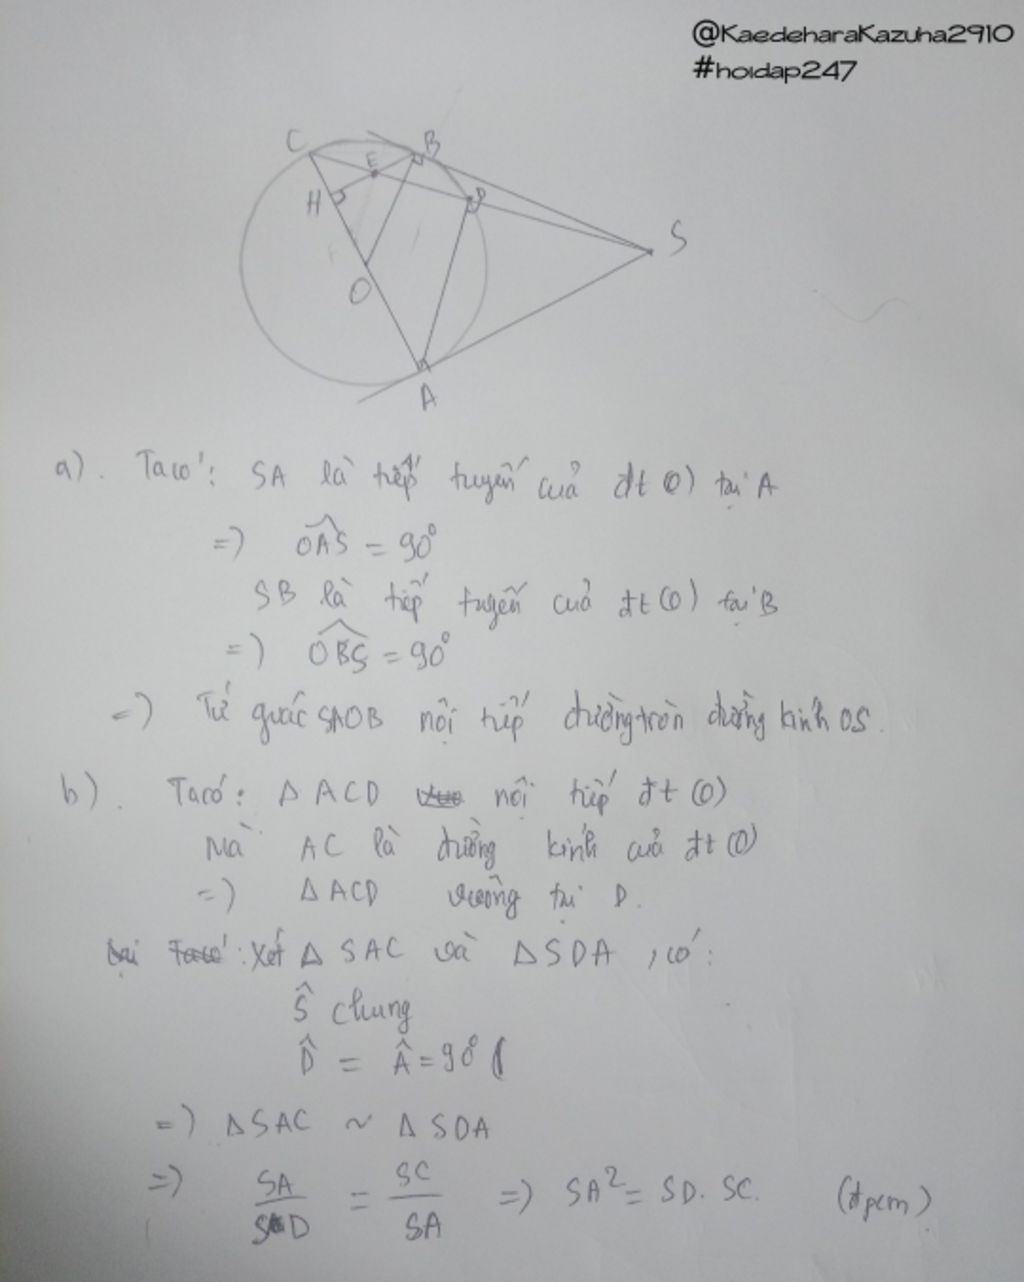 @KaedeharaKazuha2910
#hoidap247
C
B
E
D
H
S
O
A
a). Ta có: SA là tiếp tuyến của đt (O) tại A
=) OAS = 90°
SB là tiếp tuyến của đt (O) tại B
=) OBS = 90°
=) Tứ giác SAOB nội tiếp đường tròn đường kính OS.
b). Ta có: Δ ACD nội tiếp đt (O)
Mà AC là đường kính của đt (O)
=) Δ ACD vuông tại D.
Xét Δ SAC và Δ SDA, có:
Ŝ chung
D̂ = Â = 90°
=) Δ SAC ~ Δ SDA
=) SA/SD = SC/SA =) SA² = SD. SC. (đpcm)